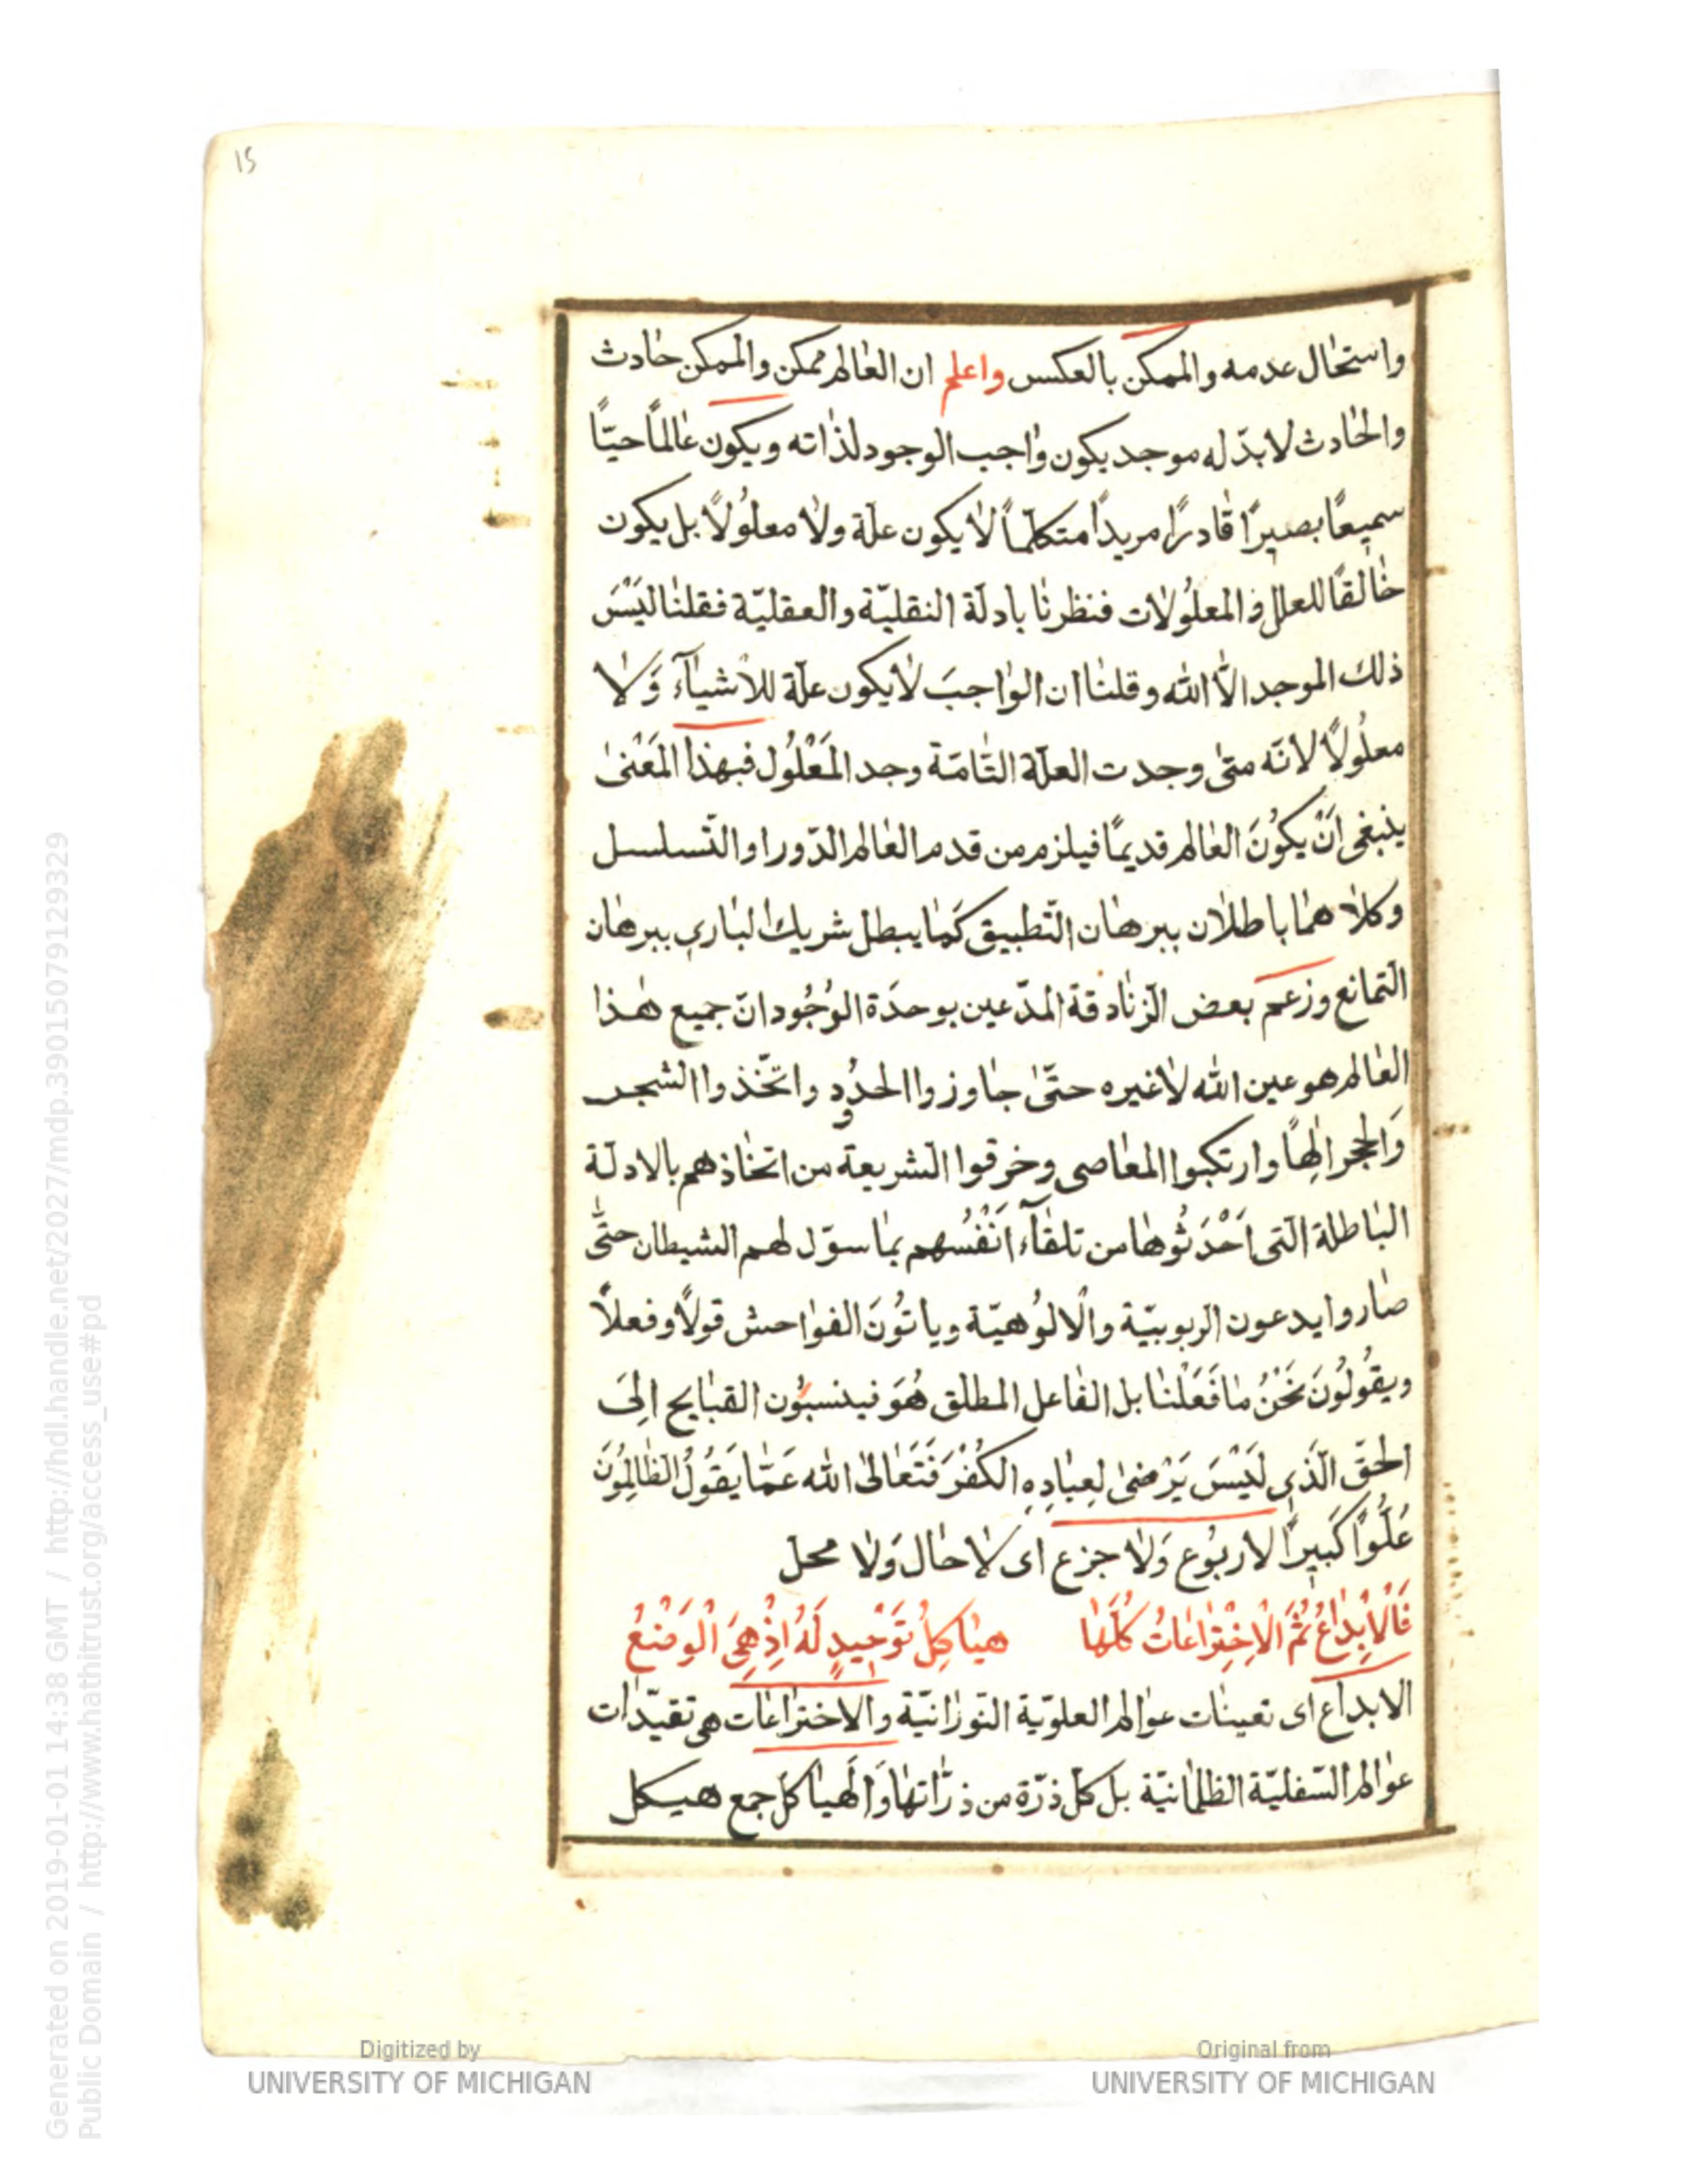 15
واستحال عدمه والممكن بالعكس واعلم ان العالم ممكن والممكن حادث
والحادث لابدّ له موجد يكون واجب الوجود لذاته ويكون عالماً حيّاً
سميعًا بصيرًا قادرًا مريدًا متكلّماً لا يكون علّة ولا معلُولاً بل يكون
خالقًا للعلل والمعلُولات فنظرنا بادلّة النقليّة والعقليّة فقلنا ليْسَ
ذلك الموجد الاّ الله وقلنا ان الواجبَ لا يكون علّة للاشيآء وَلا
معلُولاً لانّه متى وجدت العلّة التّامّة وجد المَعْلُول فبهذا المَعْنى
ينبغى اَنْ يكُونَ العالم قديمًا فيلزم من قدم العالم الدّور او التّسلسل
وكلاهما باطلان ببرهان التّطبيق كَما يبطل شريك البارى ببرهان
التمانع وزعم بعض الزنادقة المدّعين بوحدَة الوُجُود انّ جميع هذا
العالم هو عين الله لا غيره حتّى جاوزوا الحدُود واتّخذوا الشجر
وَالحجر الهًا وارتكبوا المعاصى وخرقوا الشريعة من اتخاذهم بالادلّة
الباطلة الّتى اَحْدَثُوها من تلقآء اَنْفُسهم بما سوّل لهم الشيطان حتّى
صاروا يدعون الربوبيّة والالُوهيّة وياتُونَ الفواحش قولاً وفعلاً
ويقُولُونَ نَحْنُ ما فَعَلْنا بل الفاعل المطلق هُوَ فينسبُون القبايح الِىَ
الحقّ الّذى لَيْسَ يَرْضىٰ لِعبادِهِ الكُفْرَ فَتَعَالىٰ الله عَمّا يَقُولُ الظالِمُونَ
عُلُوًّا كَبيرًا لا ربُوع وَلا جزع اى لا حال وَلا محل
فَالْاِبْداعُ ثُمَّ الْاِخْتِراعَاتُ كُلُّها هياكِلُ تَوْحيدٍ لَهُ اِذْ هِىَ الْوَضْعُ
الابداع اى تعينات عوالم العلويّة النّورانيّة والاختراعات هى تقيّدات
عوالم السّفليّة الظلمانيّة بل كل ذرّة من ذرّاتها وَالهياكل جمع هيكل
Generated on 2019-01-01 14:38 GMT / http://hdl.handle.net/2027/mdp.39015079129329
Public Domain / http://www.hathitrust.org/access_use#pd
Digitized by
UNIVERSITY OF MICHIGAN
Original from
UNIVERSITY OF MICHIGAN